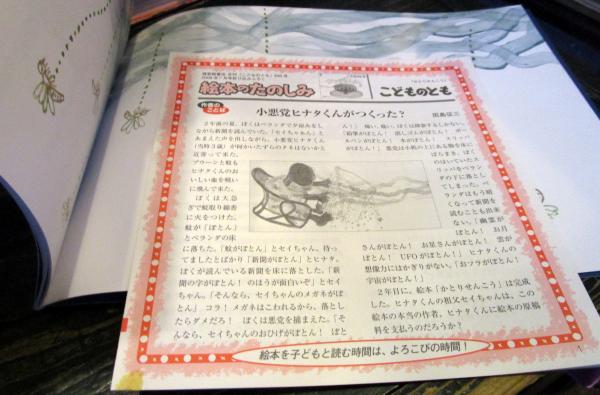 絵本のたのしみ
こどものとも
作者のことば
小悪党ヒナタくんがつくった?
田島征三
2年前の夏、ぼくはベランダで夕涼みをし
ながら新聞を読んでいた。「セイちゃん」と
あまえた声を出しながら、小悪党ヒナタくん
(当時3歳)が何かいたずらのタネはないかと
近寄って来た。
プウーンと蚊も
ヒナタくんのお
いしい血を吸い
に飛んで来た。
ぼくは大急
ぎで蚊取り線香
に火をつけた。
蚊が「ぽとん」
とベランダの床
に落ちた。「蚊がぽとん」とセイちゃん。待っ
てましたとばかり「新聞がぽとん」とヒナタ。
ぼくが読んでいる新聞を床に落とした。「新
聞の字がぽとん!のほうが面白いぞ」とセイ
ちゃん。「そんなら、セイちゃんのメガネがぽ
とん」 コラ! メガネはこわれるから、落とし
たらダメだろ! ぼくは悪党を捕まえた。「そ
んなら、セイちゃんのおひげがぽとん! ぽと
ん!」 痛い、痛い。
「鉛筆がぽとん! 消しゴムがぽとん! ボー
ルペンがぽとん! 本がぽとん! スリッパ
がぽとん!」 悪党は小机の上にある物を床に
ばらまき、ぼく
のはいていたス
リッパをベラン
ダの下に落とし
てしまった。ベ
ランダはもう暗
くなって新聞を
読むことも出来
ない。「幽霊が
ぽとん! お月
さんがぽとん! お星さんがぽとん! 雲がぽ
とん! UFOがぽとん!」 ヒナタくんの
想像力にはかぎりがない。「おソラがぽとん!
宇宙がぽとん!」
2年目に、絵本「かとりせんこう」は完成
した。ヒナタくんの祖父セイちゃんは、この
絵本の本当の作者、ヒナタくんに絵本の原稿
料を支払うのだろうか?
絵本を子どもと読む時間は、よろこびの時間!